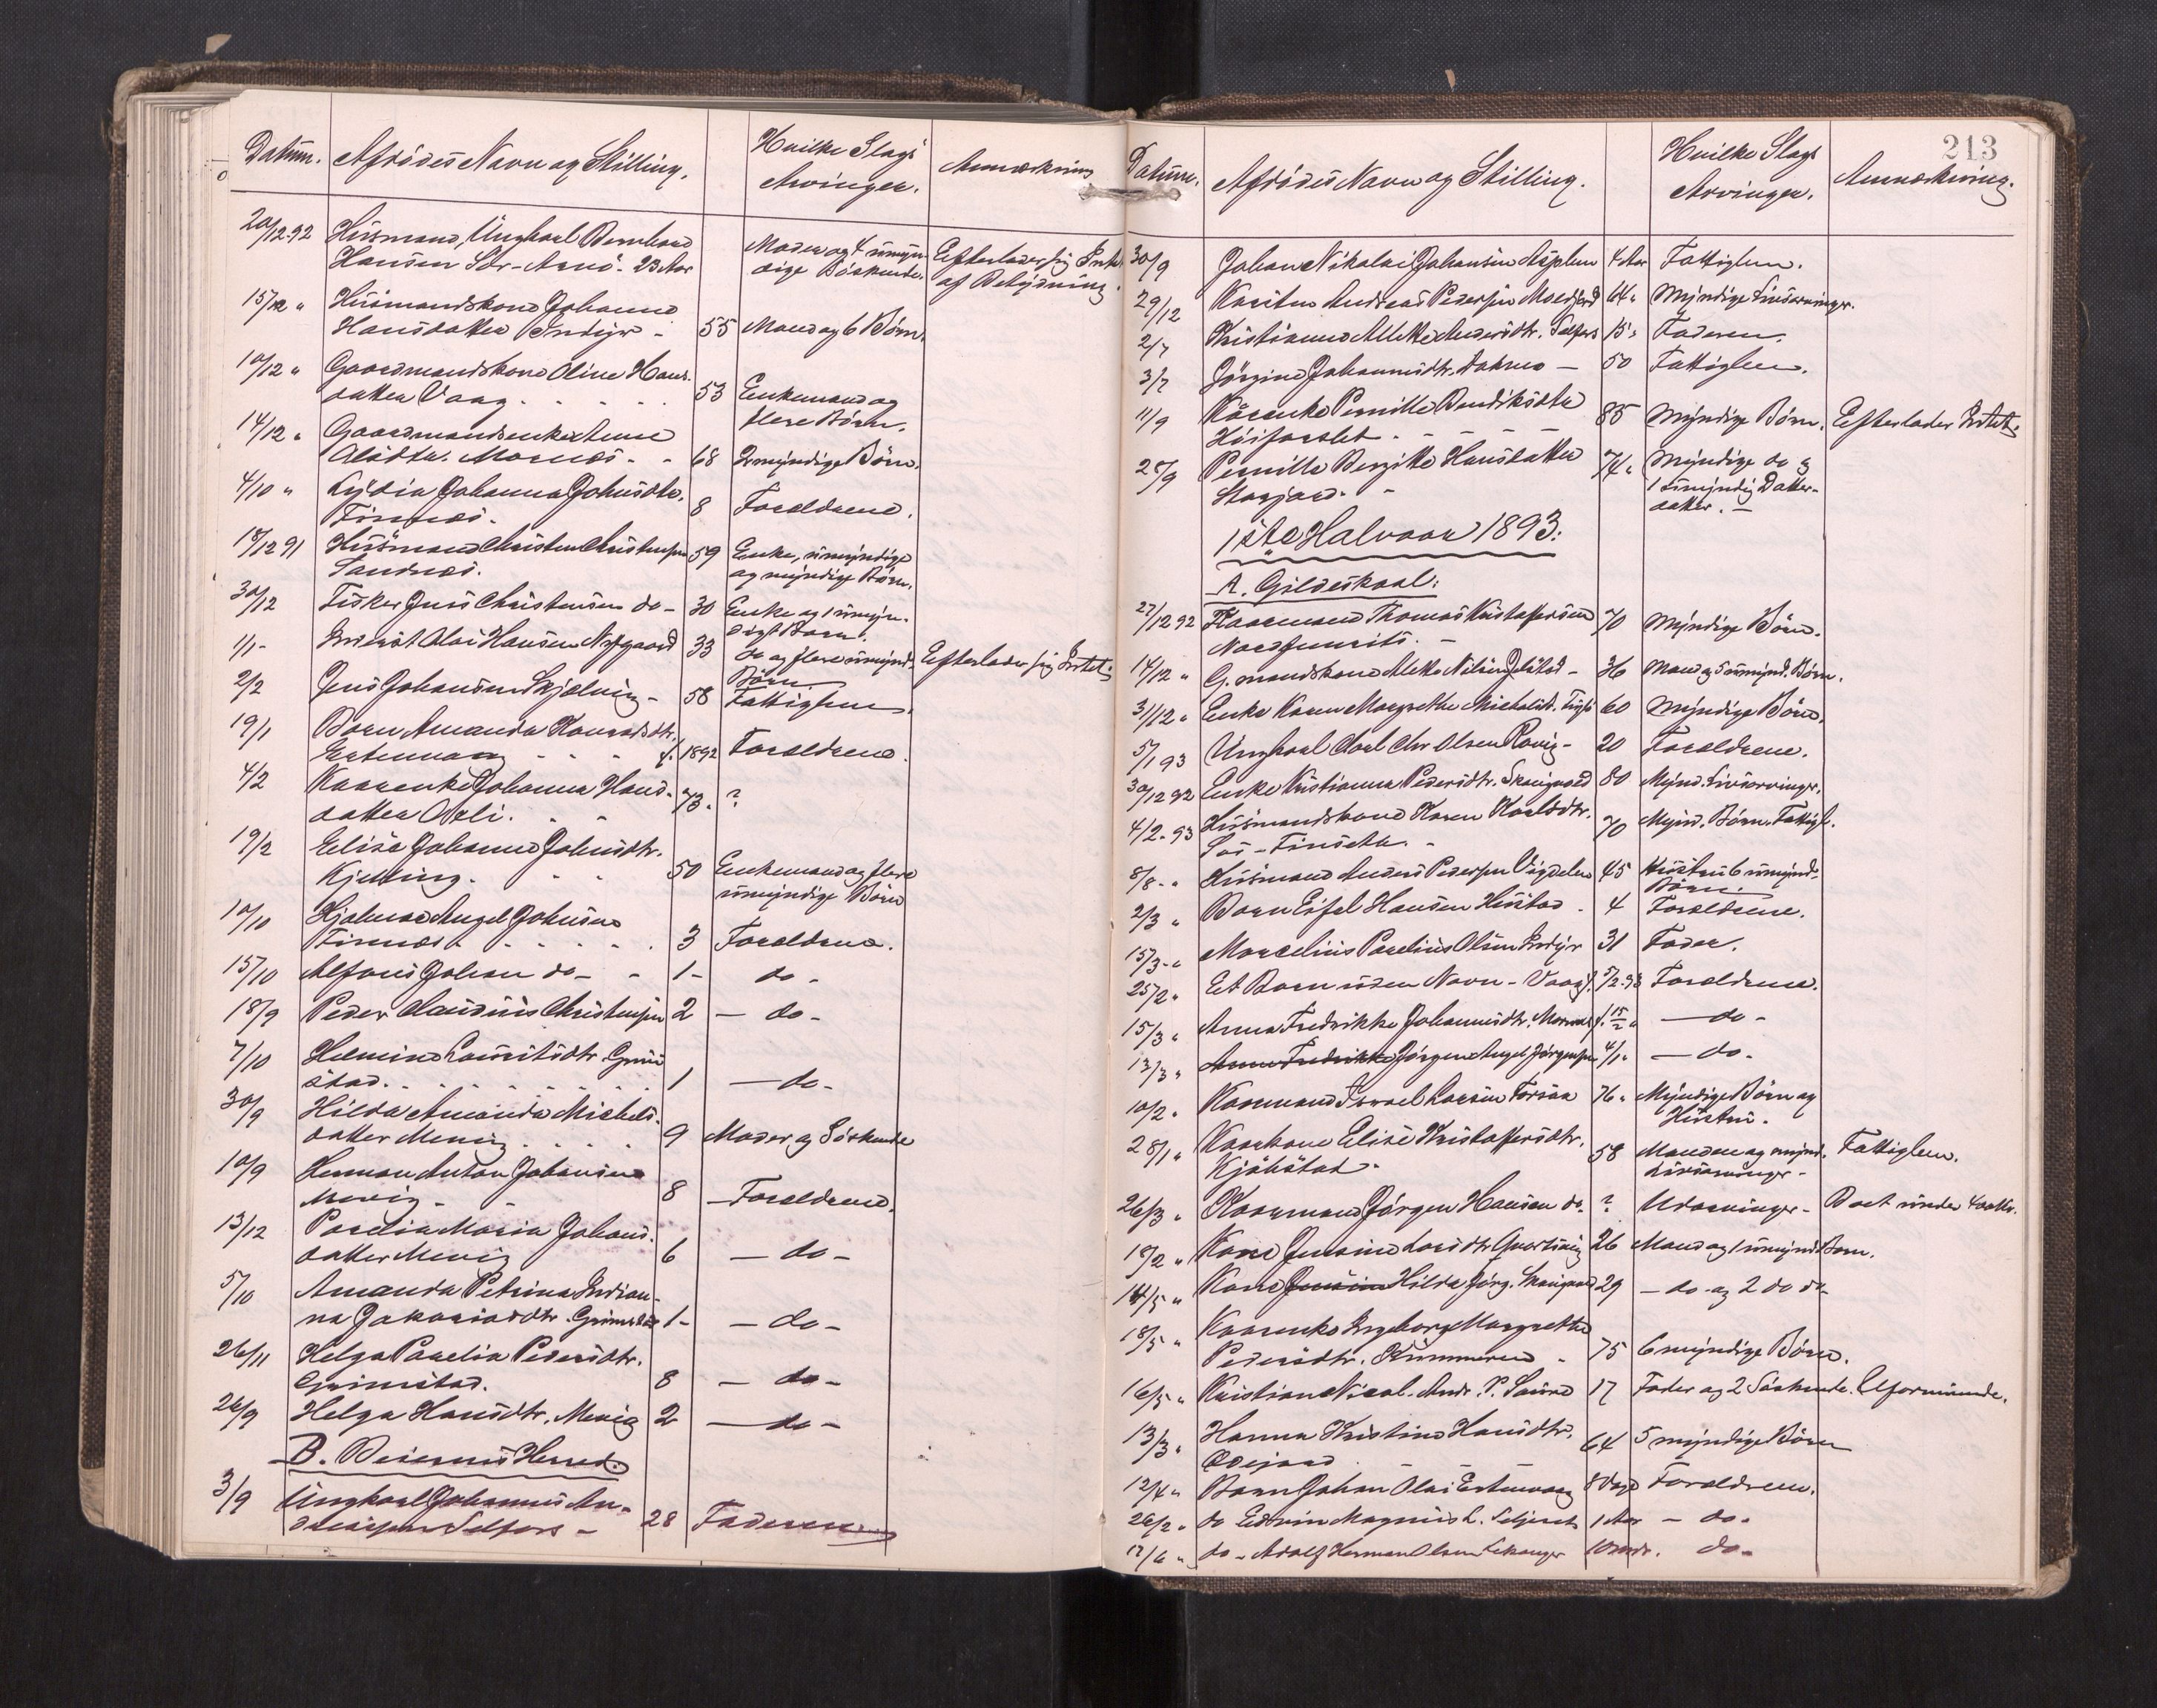 Datum. Afdödes Navn og Stilling. Hvilke Slags Arvinger. Anmærkning
20/12 92 Husmand, Ungkarl Bernhard
Hansen Sör-Arnö - 23 Aar Moder og 4 umyndige Söskende. Efterlader sig Intet af Betydning.
15/12 " Husmandskone Johanna
Hansdatter Inndyr - 55 Mand og 6 Börn.
10/12 " Gaardmandskone Oline Hans-
datter Vaag. 53 Enkemand og flere Börn.
14/12 " Gaardmandsenke Anne
Olsdtr. Mornes - 68 2 myndige Börn.
4/10 " Lydia Johanna Johnsdtr.
Finnes. 8 Forældrene.
18/12 91 Husmand Christen Christensen
Sandnes. 59 Enke, umyndige og myndige Börn.
30/12 Fisker Jens Christensen do - 30 Enke og 1 umyndigt Barn.
1/1 - Inderst Olai Hansen Nygaard 33 do og flere umynd. Börn Efterlader sig Intet
2/2 Jens Johansen Skjelvig - 58 Fattiglem.
19/1 Barn Amanda Konradsdtr.
Estenvaag f. 1892 Forældrene.
4/2 Kaarenke Johanna Hans-
datter Osli. 73. ?
19/2 Elise Johanna Johnsdtr.
Kjelling. 50 Enkemand og flere umyndige Börn
10/10 Hjalmar Angel Johnsen
Finnes 3 Forældrene.
15/10 Alfons Johan do - 1 - do -
18/9 Peder Claudius Christensen 2 - do -
7/10 Helmine Lauritsdtr. Grim-
stad. 1 - do -
30/9 Hilda Amanda Mikels-
datter Mevig 9 Moder og Söskende
10/9 Herman Anton Johansen
Mevig - 8 - Forældrene.
13/12 Parelia Maria Johans-
datter Mevig 6 - do -
5/10 Amanda Petrina Indian-
na Jakariasdtr. Grimstad 1 - - do -
26/11 Helga Parelia Pedersdtr.
Grimstad. 8 - do -
26/9 Helga Hansdtr. Mevig 2 - do -
B. Beierens Herred.
3/9 Ungkarl Johannes An-
dreassen Selfors - 28 Faderen
213
Datum. Afdödes Navn og Stilling. Hvilke Slags Arvinger. Anmærkning.
30/9 Johan Nikolai Johansen Asplun 4 Aar Fattiglem.
29/12 Karitus Andreas Pedersen Moldjord 64 " Myndige Livsarvinger.
2/7 Kristianna Alette Andersdtr. Selfors 15 " Faderen.
3/7 Jörgine Johannesdtr. - 50 Fattiglem.
11/9 Kaarenke Pernille Bendiksdtr
Höiforslet. 85 Myndige Börn. Efterlader Intet
25/9 Pernille Bergitte Hansdatter
Storjord. - 74 " Myndige do og 1 umyndig Datter-datter. -
1ste Halvaar 1893.
A. Gildeskaal:
27/12 92 Kaarmand Thomas Kristoffersen
Nordfuurits. - 70 Myndige Börn.
14/12 " G. mandskone Alette Nilsen - 36 Mand og 5 umynd. Börn.
31/12 " Enke Karen Margrethe Mikelsd. 60 Myndige Börn.
5/1 93 Ungkarl Carl Chr Olsen - 20 Forældrene.
30/12 92 Enke Kristianna Pedersdtr. Skaugvold 80 Mynd. Livsarvinger.
4/2 - 93 Husmandskone Karen Karlsdtr.
Sör-Finseth. - 70 Mynd. Börn. Fattigl.
8/8 - " Husmand Anders Pedersen Vigdalen 45 Hustru 6 umynd. Börn.
2/3 " Barn Eifel Hansen Hustad - 4 Forældrene.
15/3 - " Marcelius Parelius Olsen Inndyr 31 Fader.
25/2 " Et Barn uden Navn - Vaag f. 5/2 - 93 Forældrene.
15/3 " Anna Fredrikke Johannesdtr. Mornes f. 15/2 " - do -
13/3 " Anna Fredrikke Jörgen Angel Jörgensen 4/1 " - do -
10/2 " Kaarmand Israel Larsen Forsaa 76 " Myndige Börn og Hustru.
28/1 " Kaarkone Elise Kristoffersdtr.
Kjökstad - 58 Manden og mynd. Livsarvinger - Fattiglem.
26/3 " Kaarmand Jörgen Hansen do. ? Udarvinger - Boet under
18/2 " Kone Jensine Larsdtr. 26 Mand og 1 umynd Barn.
14/5 " Kone Jensine Hilda Jörg. Skaugvold 29 - do - og 2 do do -
18/5 " Kaarenke Ingeborg Margrethe
Pedersdtr. - 75 6 myndige Börn.
16/5 " Kristian Nicol. Andr. P. Sund 17 Fader og 2 Söskende. Uformuende.
13/3 " Hanna Kristine Hansdtr.
64 5 myndige Börn
12/4 " Barn Johan Olai Estenvaag 8 Dage Forældrene.
26/2 " do Edvin Magnus L. 1 Aar - do -
12/6 " do - Adolf Herman Olsen 10 Mdr. do -